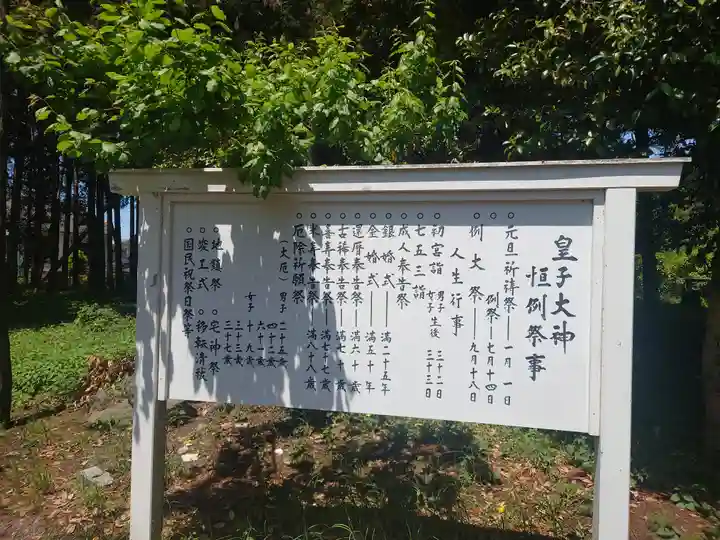 皇子大神
恒例祭事
○元旦祈祷祭──一月一日
例祭──七月十四日
○例大祭──九月十八日
人生行事
○初宮詣 男子生後 三十二日
女子〃 三十三日
○七五三詣
○成人奉告祭
○銀婚式──満二十五年
○金婚式──満五十年
○還暦奉告祭──満六十歳
○古稀奉告祭──満七十歳
○喜寿奉告祭──満七十七歳
○米寿奉告祭──満八十八歳
○厄除祈願祭
(大厄) 男子 二十五歳
四十二歳
六十一歳
女子 十九歳
三十三歳
三十七歳
○地鎮祭 ○宅神祭
○竣工式 ○移転清祓
○国民祝祭日祭典